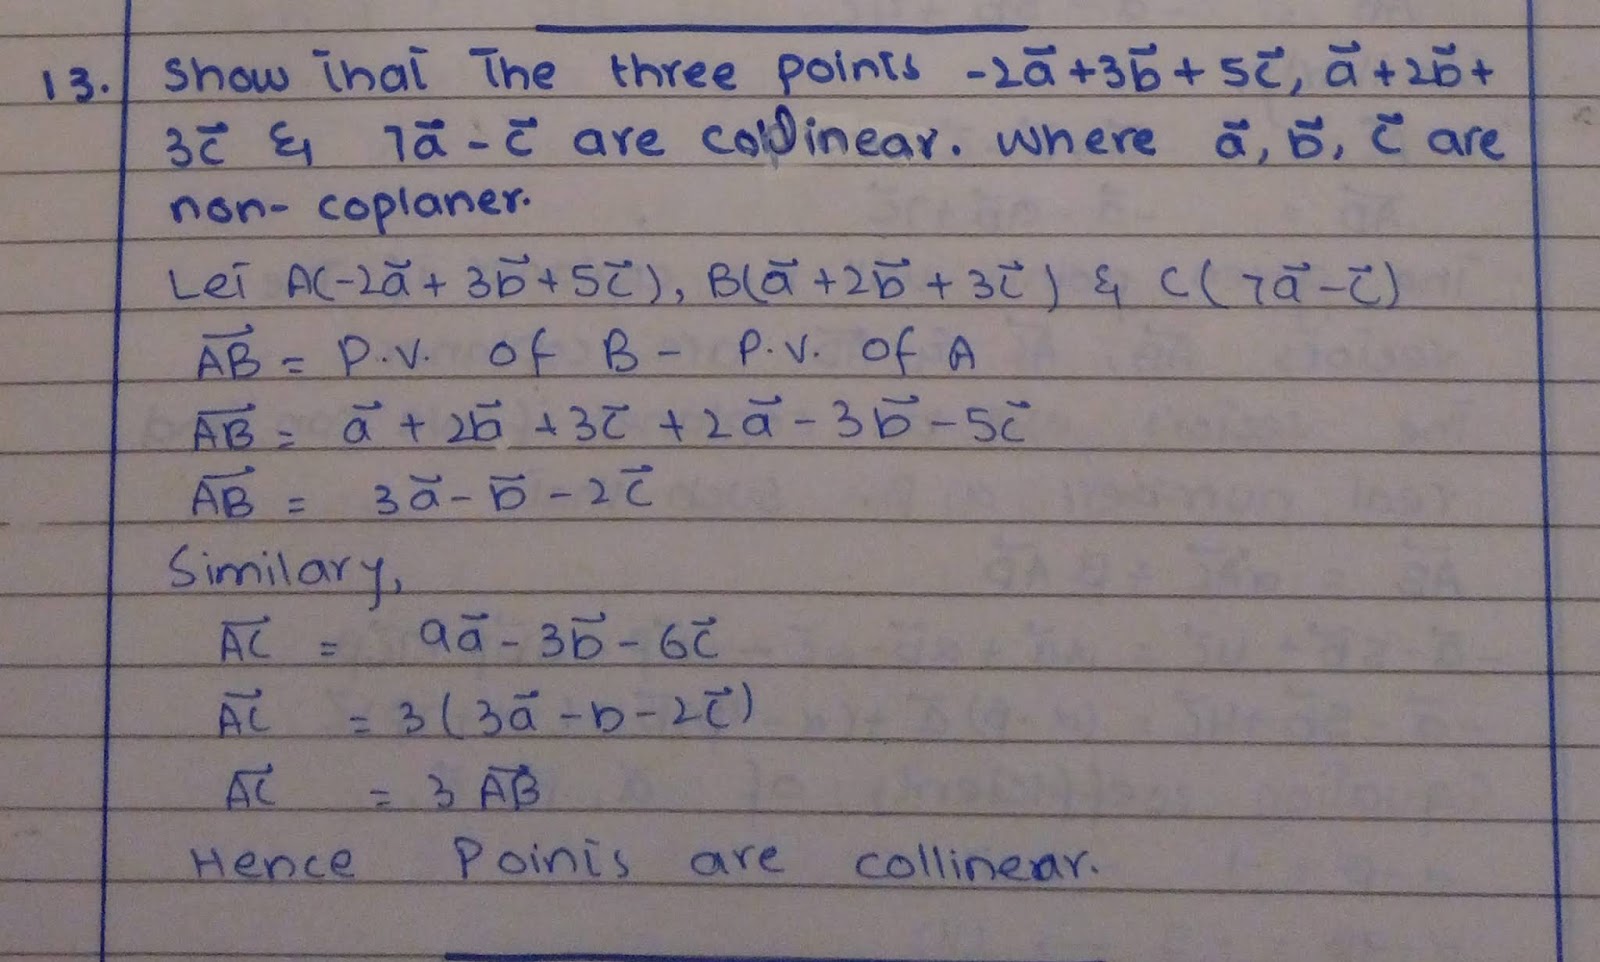 13. Show that the three points -2a⃗ + 3b⃗ + 5c⃗, a⃗ + 2b⃗ +
3c⃗ & 7a⃗ - c⃗ are collinear. where a⃗, b⃗, c⃗ are
non-coplaner.
Let A(-2a⃗ + 3b⃗ + 5c⃗), B(a⃗ + 2b⃗ + 3c⃗) & C(7a⃗ - c⃗)
A͞B⃗ = P.V. of B - P.V. of A
A͞B⃗ = a⃗ + 2b⃗ + 3c⃗ + 2a⃗ - 3b⃗ - 5c⃗
A͞B⃗ = 3a⃗ - b⃗ - 2c⃗
Similary,
A͞C⃗ = 9a⃗ - 3b⃗ - 6c⃗
A͞C⃗ = 3(3a⃗ - b - 2c⃗)
A͞C⃗ = 3 A͞B⃗
Hence Points are collinear.